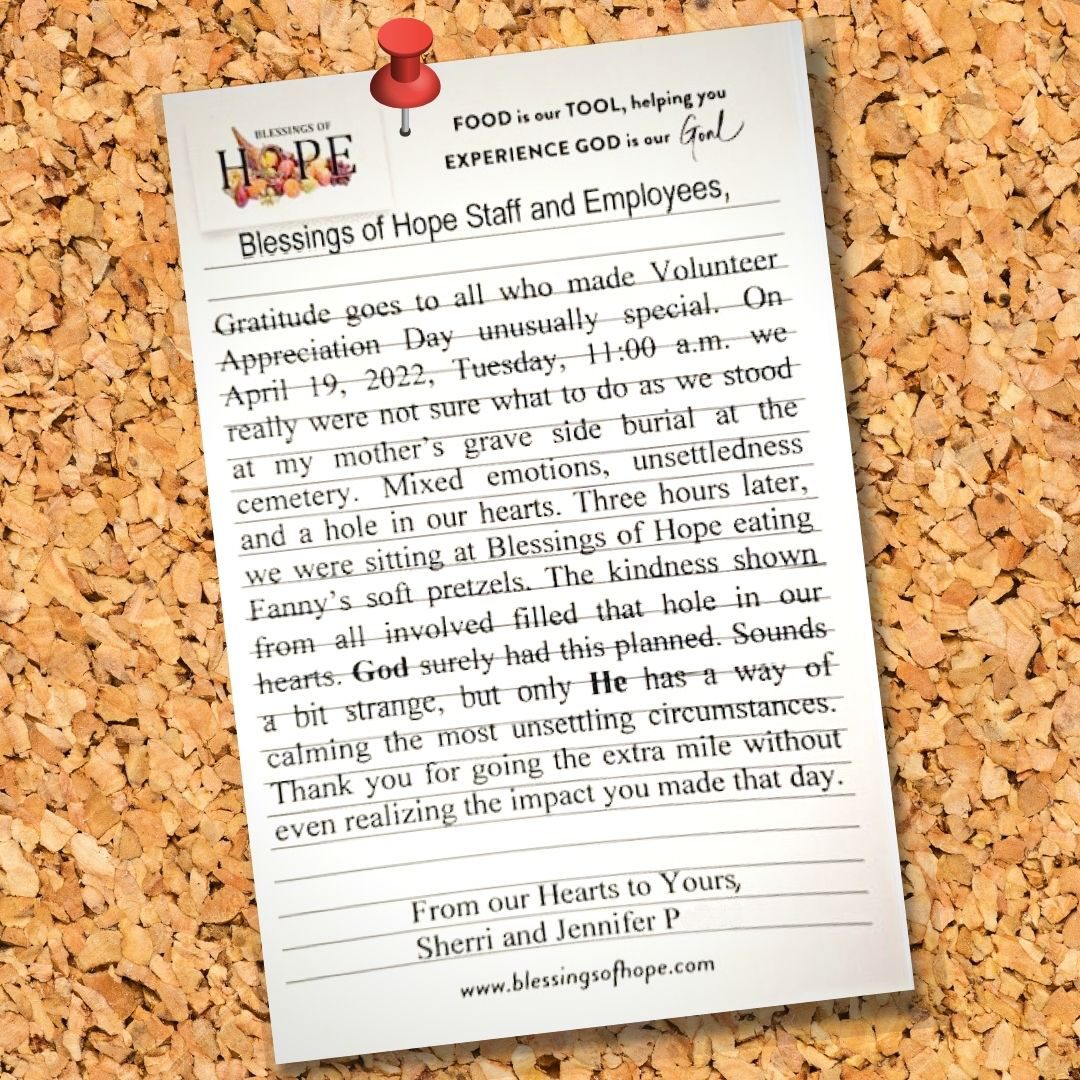 BLESSINGS OF
HOPE
FOOD is our TOOL, helping you
EXPERIENCE GOD is our Goal
Blessings of Hope Staff and Employees,
Gratitude goes to all who made Volunteer
Appreciation Day unusually special. On
April 19, 2022, Tuesday, 11:00 a.m. we
really were not sure what to do as we stood
at my mother's grave side burial at the
cemetery. Mixed emotions, unsettledness
and a hole in our hearts. Three hours later,
we were sitting at Blessings of Hope eating
Fanny's soft pretzels. The kindness shown
from all involved filled that hole in our
hearts. God surely had this planned. Sounds
a bit strange, but only He has a way of
calming the most unsettling circumstances.
Thank you for going the extra mile without
even realizing the impact you made that day.
From our Hearts to Yours,
Sherri and Jennifer P
www.blessingsofhope.com